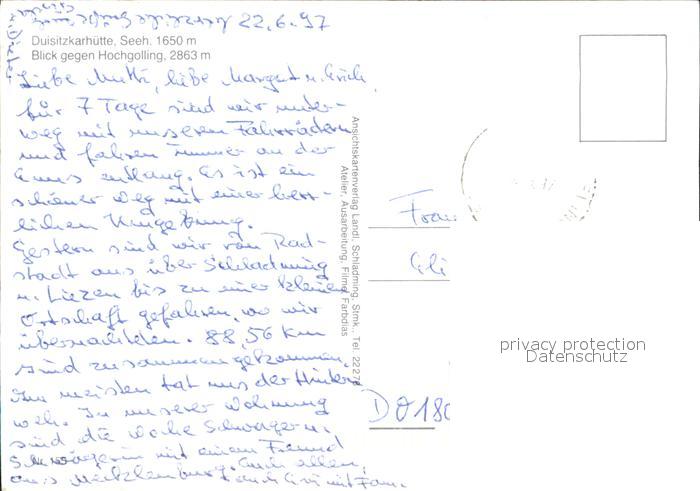 22.6.97
Duisitzkarhütte, Seeh. 1650 m
Blick gegen Hochgolling, 2863 m
Liebe Mutti, liebe Margret u. Erich,
für 7 Tage sind wir unter-
weg mit unseren Fahrrädern
und fahren immer an der
Enns entlang. Es ist ein
schöner Weg mit einer herr-
lichen Umgebung.
Gestern sind wir von Rad-
stadt aus über Schladming
u. Liezen bis zu einer kleinen
Ortschaft gefahren, wo wir
übernachteten. 88,56 Km
sind zusammengekommen.
Am meisten tat uns der Hintern
weh. In unserer Wohnung
sind die Woche Schwager u.
Schwägerin mit einem Freund
aus Mecklenburg. Euch allen,
Ansichtskartenverlag Landl, Schladming, Stmk., Tel. 2227
Atelier, Ausarbeitung, Filme, Farbdias
Frau
D O 180
privacy protection
Datenschutz